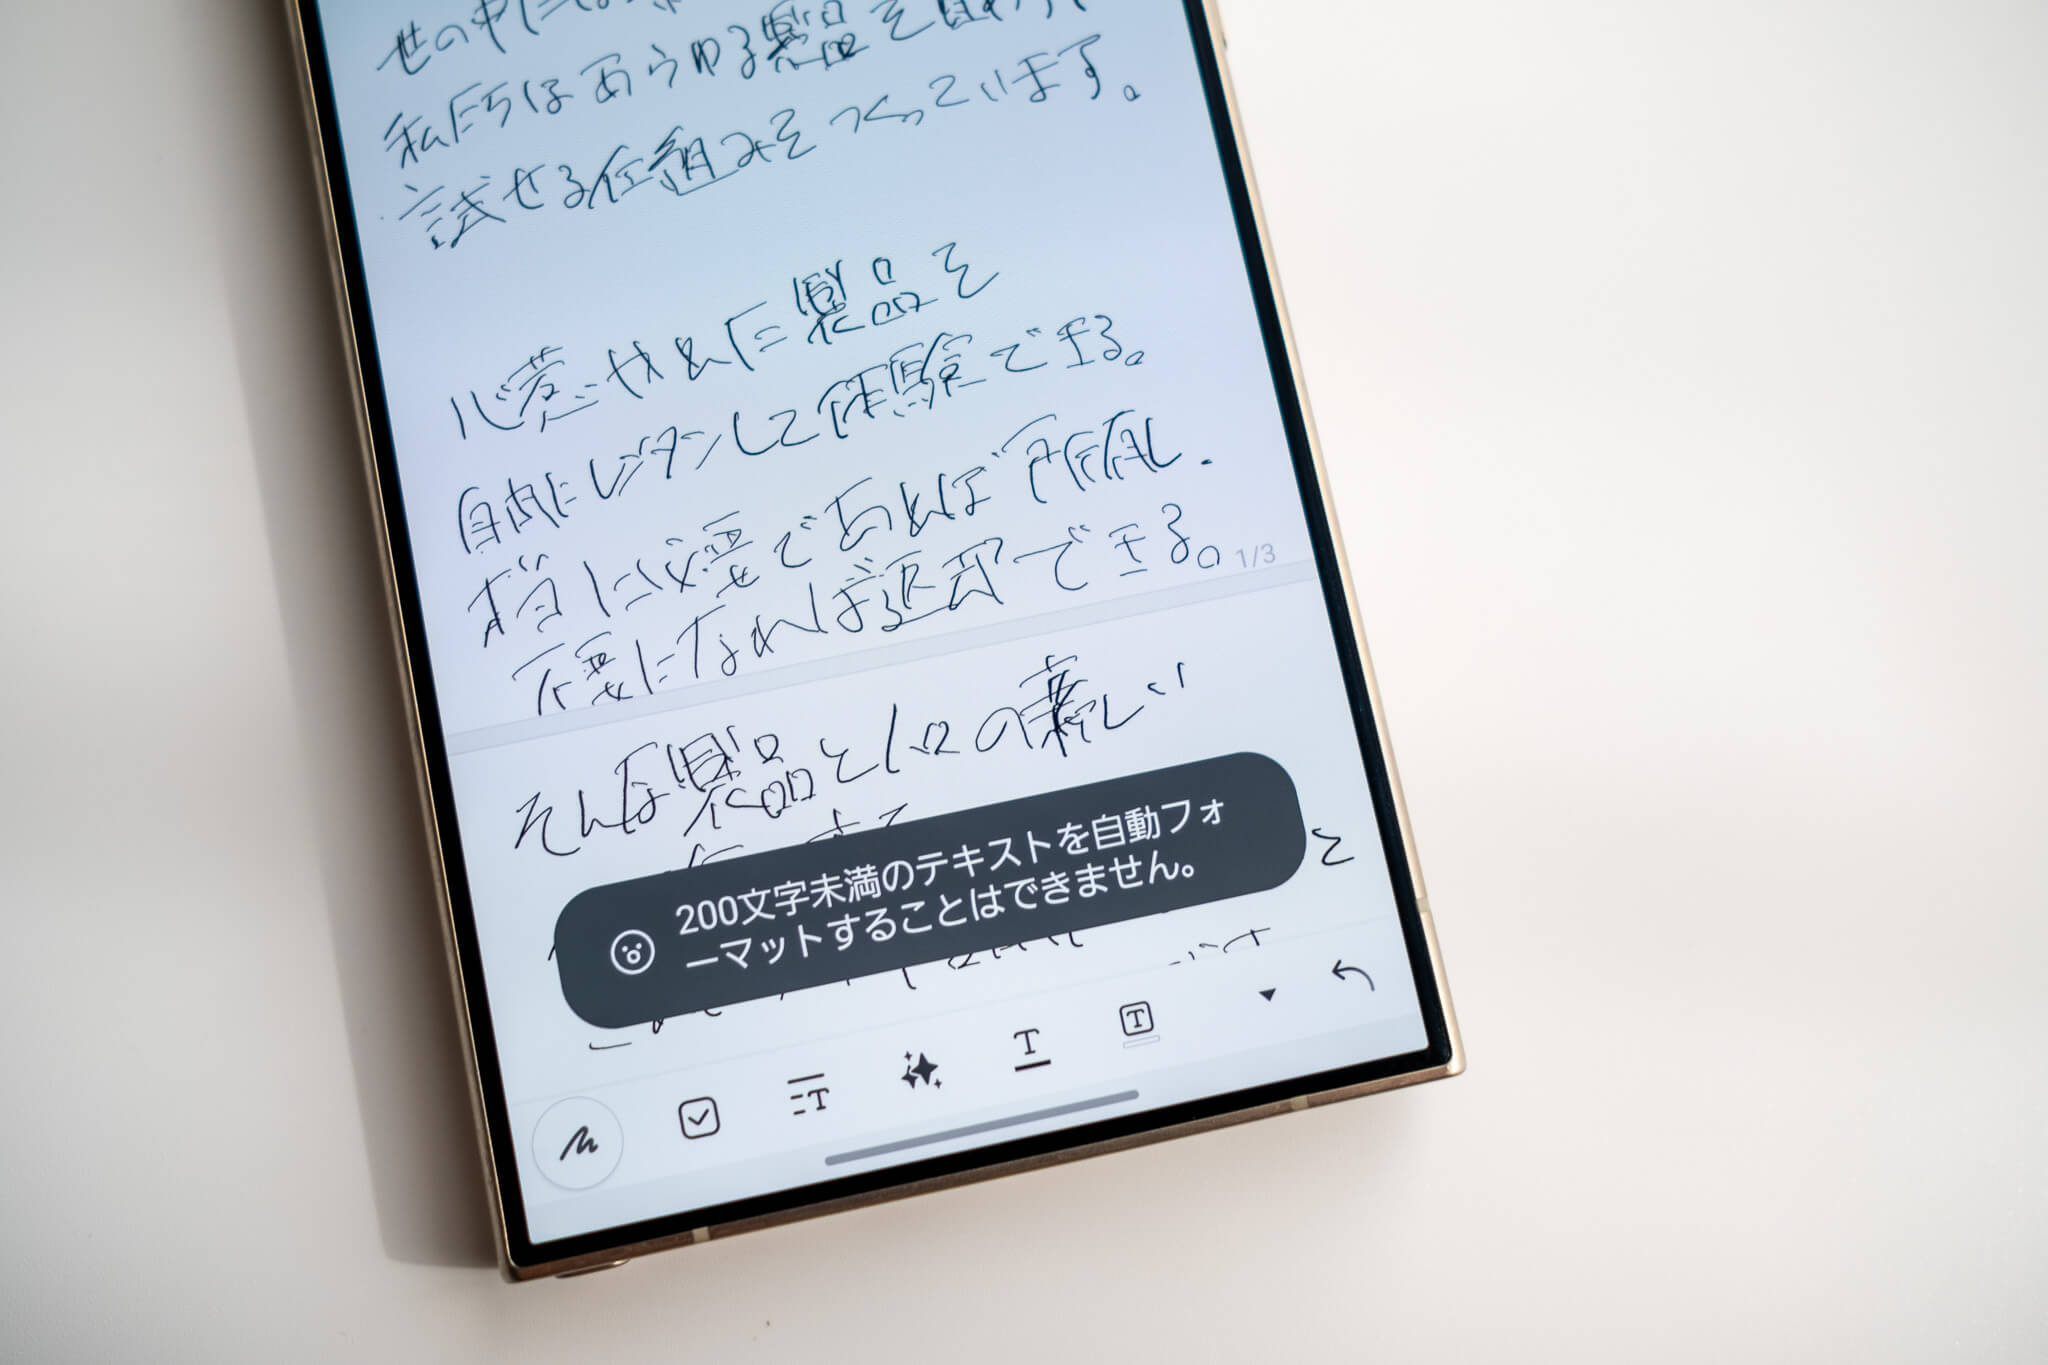 世の中には
私たちはあらゆる製品を
試せる仕組みをつくっています。
心惹かれた製品を
自由にレンタルして体験できる。
本当に必要であれば所有し.
不要になれば返却できる。
1/3
そんな製品と人の新しい
200文字未満のテキストを自動フォ
ーマットすることはできません。
と
T
T
T